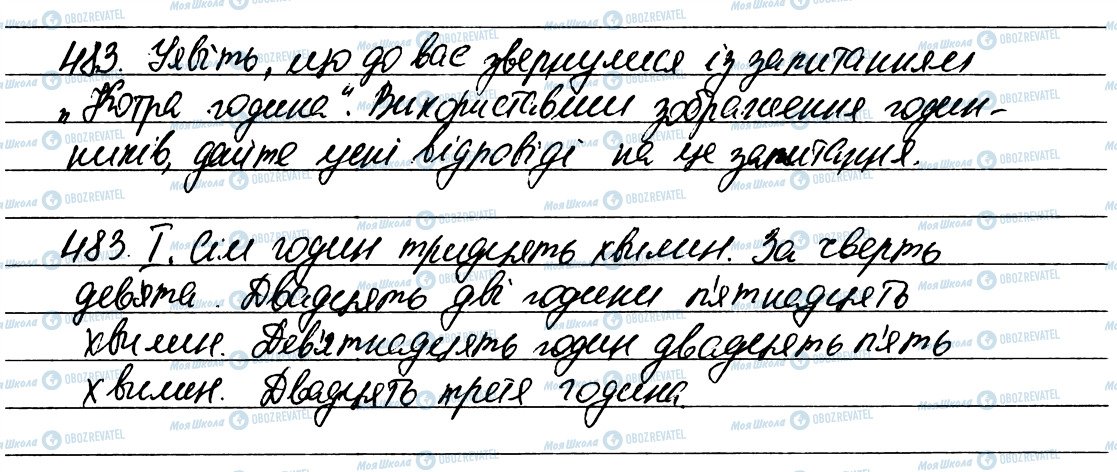 483. Уявіть, що до вас звернулися із запитанням
„Котра година“. Використавши зображення годин-
ників, дайте усні відповіді на це запитання.
483. I. Сім годин тридцять хвилин. За чверть
дев'ята. Двадцять дві години п'ятнадцять
хвилин. Дев'ятнадцять годин двадцять п'ять
хвилин. Двадцять третя година.